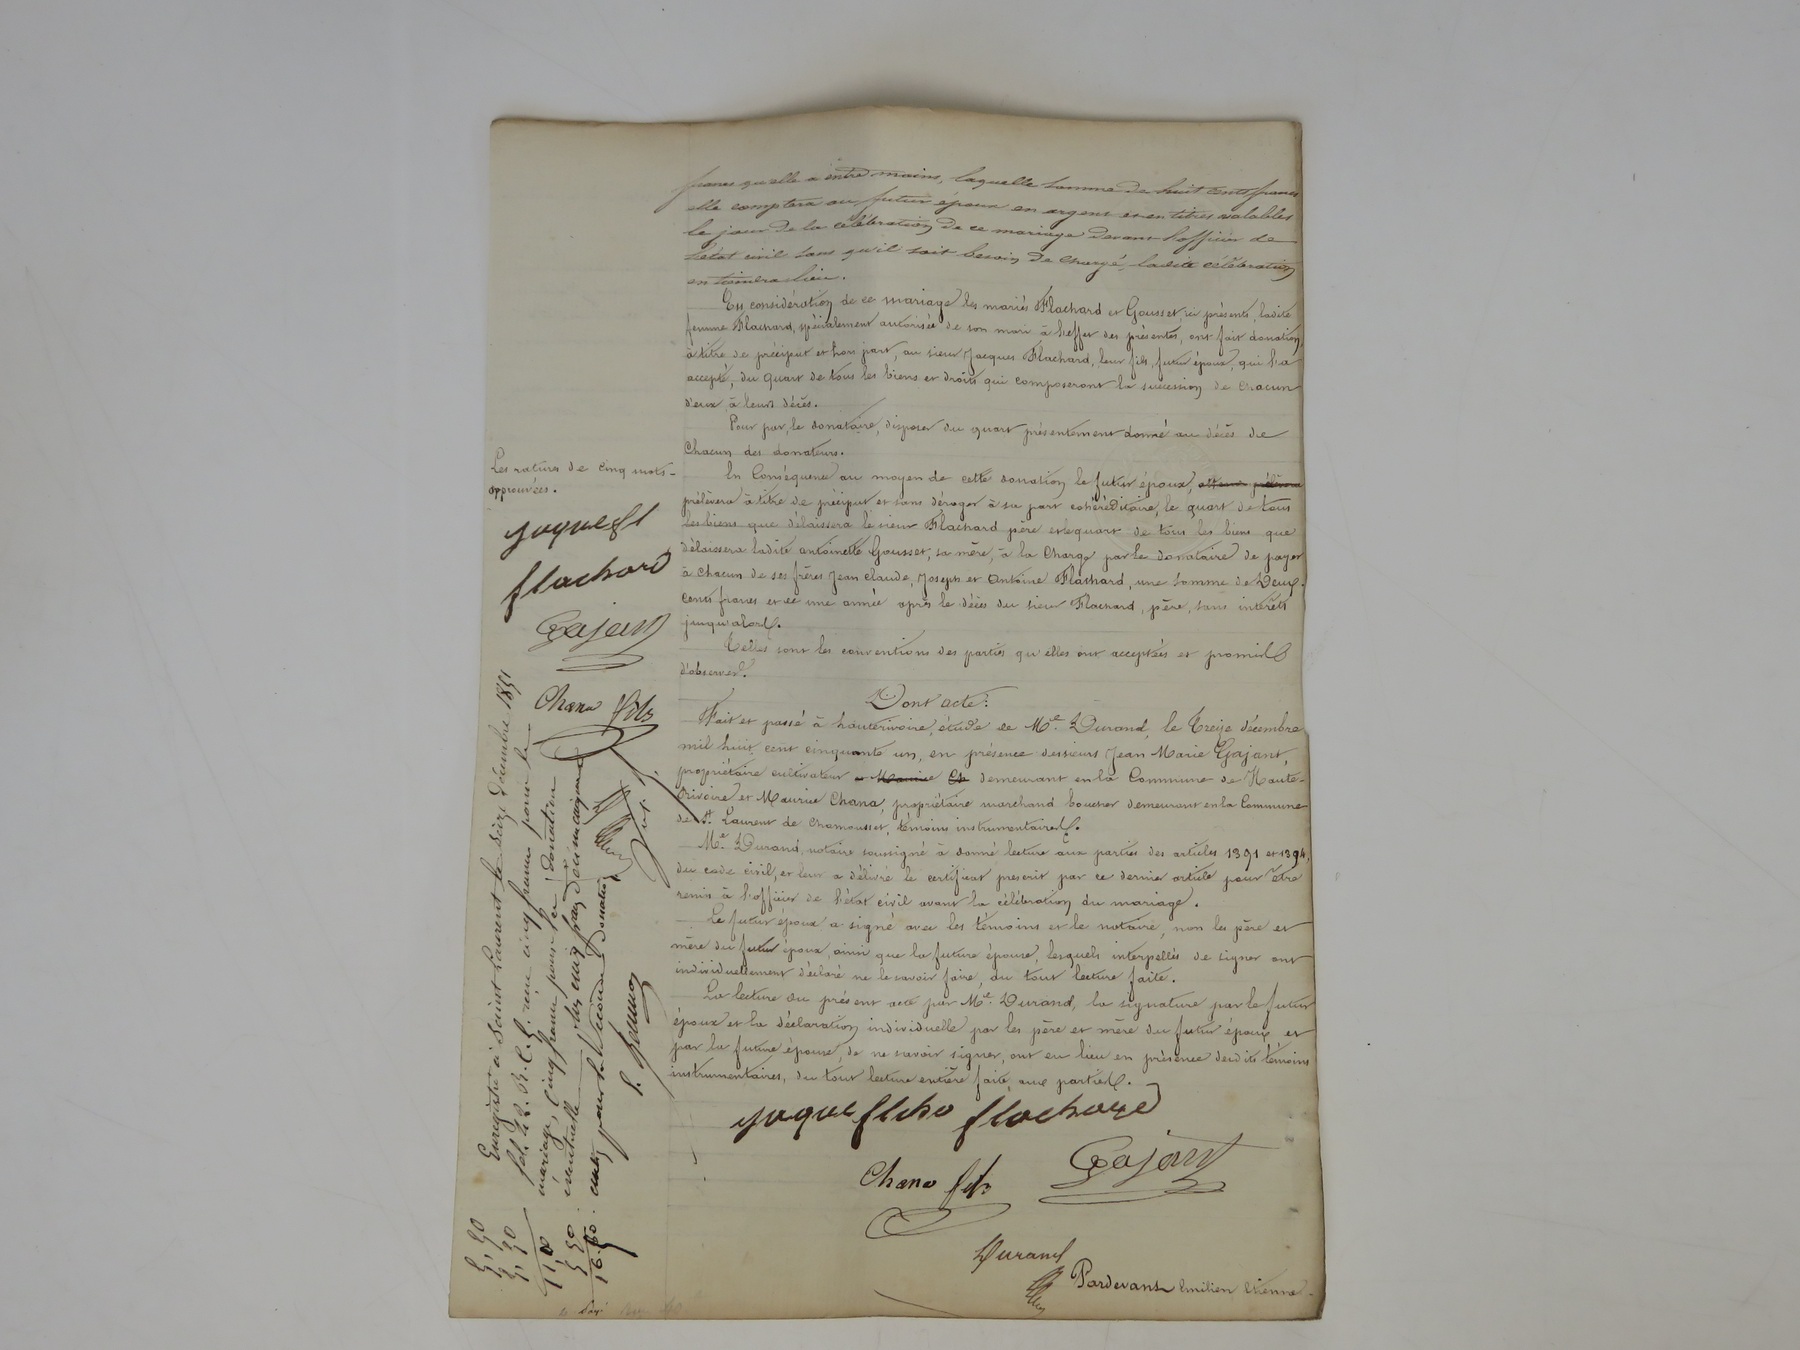 francs qu'elle a entre mains, laquelle somme de huit cents francs
elle comptera au futur époux en argent et en titres valables
le jour de la célébration de ce mariage devant l'officier de
l'état civil sans qu'il soit besoin de charge, ladite célébration
en tiendra lieu.
En considération de ce mariage les mariés Flachard et Gousset, ici présents, ladite
femme Flachard, spécialement autorisée de son mari à l'effet des présentes, ont fait donation,
à titre de préciput et hors part, au sieur Jacques Flachard, leur fils, futur époux, qui l'a
accepté, du quart de tous les biens et droits qui composeront la succession de chacun
d'eux à leurs décès.
Pour par, le donataire, disposer du quart présentement donné au décès de
chacun des donateurs.
En conséquence au moyen de cette donation le futur époux,
prélèvera à titre de préciput et sans déroger à sa part cohéréditaire, le quart de tous
les biens que délaissera le sieur Flachard père et le quart de tous les biens que
délaissera ladite antoinette Gousset, sa mère, à la charge par le donataire de payer
à chacun de ses frères Jean Claude, Joseph et Antoine Flachard, une somme de Deux
cents francs et ce une année après le décès du sieur Flachard, père, sans intérêts
jusqu'alors.
Telles sont les conventions des parties qu'elles ont acceptées et promis
d'observer.
Dont acte:
Fait et passé à hauterivoire, étude de Me Durand, le treize décembre
mil huit cent cinquante un, en présence des sieurs Jean Marie Gajant,
propriétaire cultivateur demeurant en la Commune de Haute-
Rivoire et Maurice Chana, propriétaire marchand boucher demeurant en la Commune
de St Laurent de Chamousset, témoins instrumentaires.
Me Durand, notaire soussigné à donné lecture aux parties des articles 1391 et 1394,
du code civil, et leur a délivré le certificat prescrit par ce dernier article pour être
remis à l'officier de l'état civil avant la célébration du mariage.
Le futur époux a signé avec les témoins et le notaire, non les père et
mère du futur époux ainsi que la future épouse, lesquels interpellés de signer ont
individuellement déclaré ne le savoir faire, du tout lecture faite.
La lecture du présent acte par Me Durand, la signature par le futur
époux et la déclaration individuelle par les père et mère du futur époux et
par la future épouse, de ne savoir signer, ont eu lieu en présence desdits témoins
instrumentaires, du tout lecture entière faite, aux parties.
flachard
Chana fils
Gajant
Durand
Pardevant Emilien Etienne
Les ratures de cinq mots
approuvées.
flachard
Gajant
Chana fils
Enregistré à Saint Laurent le seize Décembre 1851
reçu cinq francs pour le
mariage, cinq francs pour la donation
éventuelle
5,50
5,50
11,00
5,50
16.50